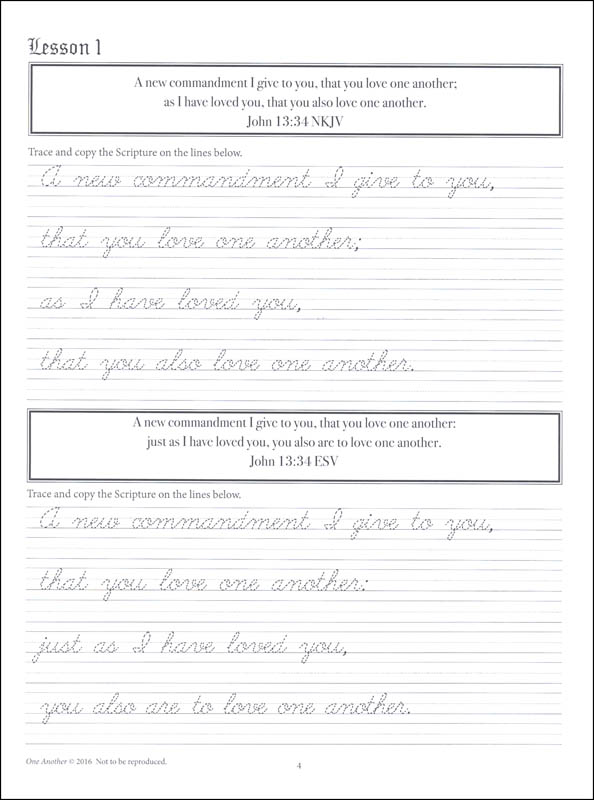 Lesson 1
A new commandment I give to you, that you love one another;
as I have loved you, that you also love one another.
John 13:34 NKJV
Trace and copy the Scripture on the lines below.
A new commandment I give to you,
that you love one another;
as I have loved you,
that you also love one another.
A new commandment I give to you, that you love one another:
just as I have loved you, you also are to love one another.
John 13:34 ESV
Trace and copy the Scripture on the lines below.
A new commandment I give to you,
that you love one another:
just as I have loved you,
you also are to love one another.
One Another © 2016 Not to be reproduced.
4